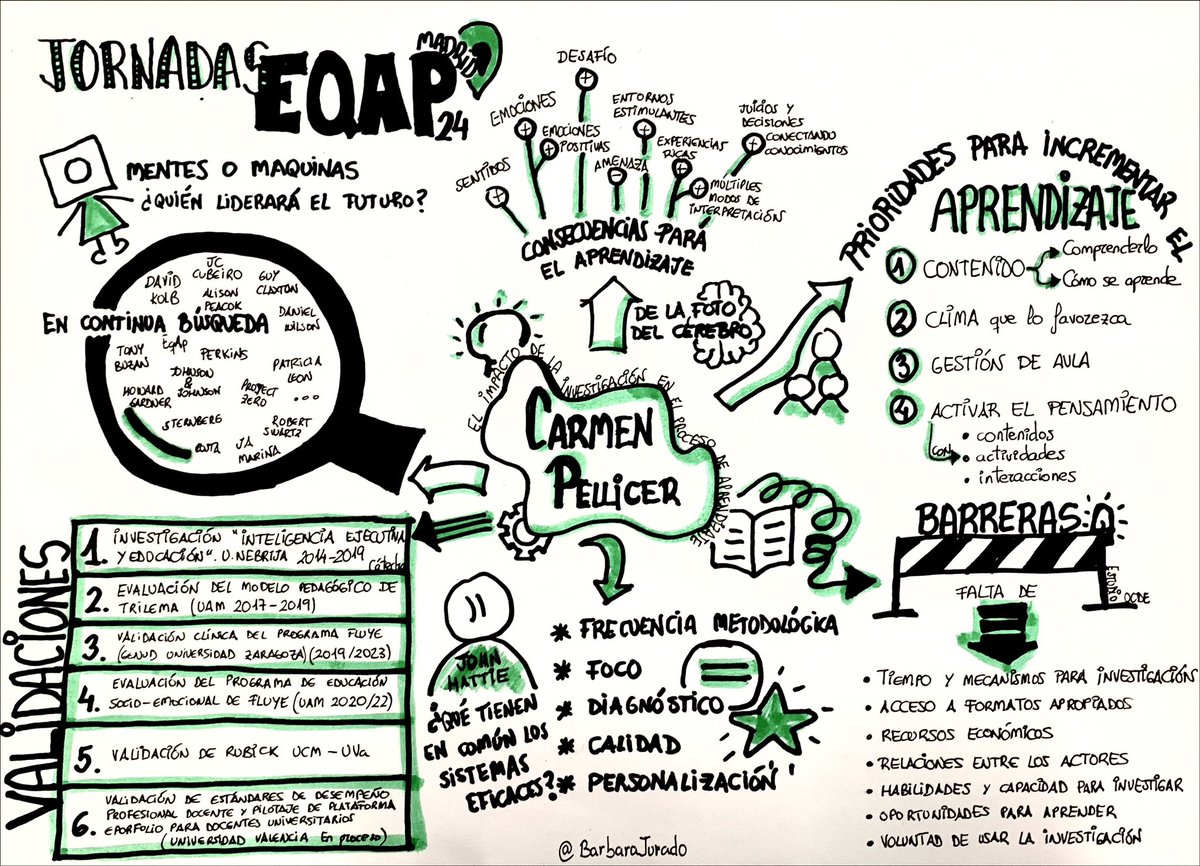 JORNADAS
EQAP
24
MADRID
MENTES O MAQUINAS
¿QUIÉN LIDERARÁ EL FUTURO?
DAVID
KOLB
JC
CUBEIRO
ALISON
PEACOK
GUY
CLAXTON
EN CONTINUA BÚSQUEDA
DANIEL
WILSON
EqAp
TONY
BUZAN
PERKINS
JOHNSON
&
JOHNSON
PATRICIA
LEON
HOWARD
GARDNER
PROJECT
ZERO
...
STERNBERG
ROBERT
SWARTZ
JA
MARINA
DESAFÍO
EMOCIONES
EMOCIONES
POSITIVAS
ENTORNOS
ESTIMULANTES
JUICIOS Y
DECISIONES
CONECTANDO
CONOCIMIENTOS
SENTIDOS
AMENAZA
EXPERIENCIAS
RICAS
MÚLTIPLES
MODOS DE
INTERPRETACIÓN
CONSECUENCIAS PARÁ
EL APRENDIZAJE
DE LA FOTO
DEL CÉREBRO
EL IMPACTO DE LA INVESTIGACIÓN EN EL PROCESO DE APRENDIZAJE
CARMEN
PELLICER
PRIORIDADES PARA INCREMENTAR EL
APRENDIZAJE
1 CONTENIDO
Comprenderlo
Cómo se aprende
2 CLIMA que lo favorezca
3 GESTIÓN DE AULA
4 ACTIVAR EL PENSAMIENTO
CON
• contenidos
• actividades
• interacciones
BARRERAS
ESTUDIO OCDE
FALTA DE
• TIEMPO Y MECANISMOS PARA INVESTIGACIÓN
• ACCESO A FORMATOS APROPIADOS
• RECURSOS ECONÓMICOS
• RELACIONES ENTRE LOS ACTORES
• HABILIDADES Y CAPACIDAD PARA INVESTIGAR
• OPORTUNIDADES PARA APRENDER
• VOLUNTAD DE USAR LA INVESTIGACIÓN
VALIDACIONES
1. INVESTIGACIÓN "INTELIGENCIA EJECUTIVA
Y EDUCACIÓN". U. NEBRIJA 2014-2019
2. EVALUACIÓN DEL MODELO PEDAGÓGICO DE
TRILEMA (UAM 2017-2019)
3. VALIDACIÓN CLÍNICA DEL PROGRAMA FLUYE
(GENUD UNIVERSIDAD ZARAGOZA) (2019/2023)
4. EVALUACIÓN DEL PROGRAMA DE EDUCACIÓN
SOCIO-EMOCIONAL DE FLUYE (UAM 2020/22)
5. VALIDACIÓN DE RUBICK UCM - UVa
6. VALIDACIÓN DE ESTÁNDARES DE DESEMPEÑO
PROFESIONAL DOCENTE Y PILOTAJE DE PLATAFORMA
EPORFOLIO PARA DOCENTES UNIVERSITARIOS
(UNIVERSIDAD VALENCIA En proceso)
JOHN
HATTIE
¿QUÉ TIENEN
EN COMÚN LOS
SISTEMAS
EFICACES?
* FRECUENCIA METODOLÓGICA
* FOCO
* DIAGNÓSTICO
* CALIDAD
* PERSONALIZACIÓN
@BarbaraJurado